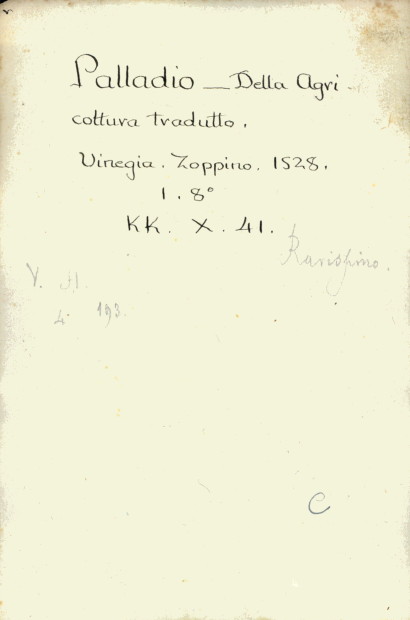 Palladio — Della Agri-
cottura tradutto.
Vinegia. Zoppino. 1528.
1. 8°
KK. X. 41.
Rarissimo.
V. A1.
4 193.
C